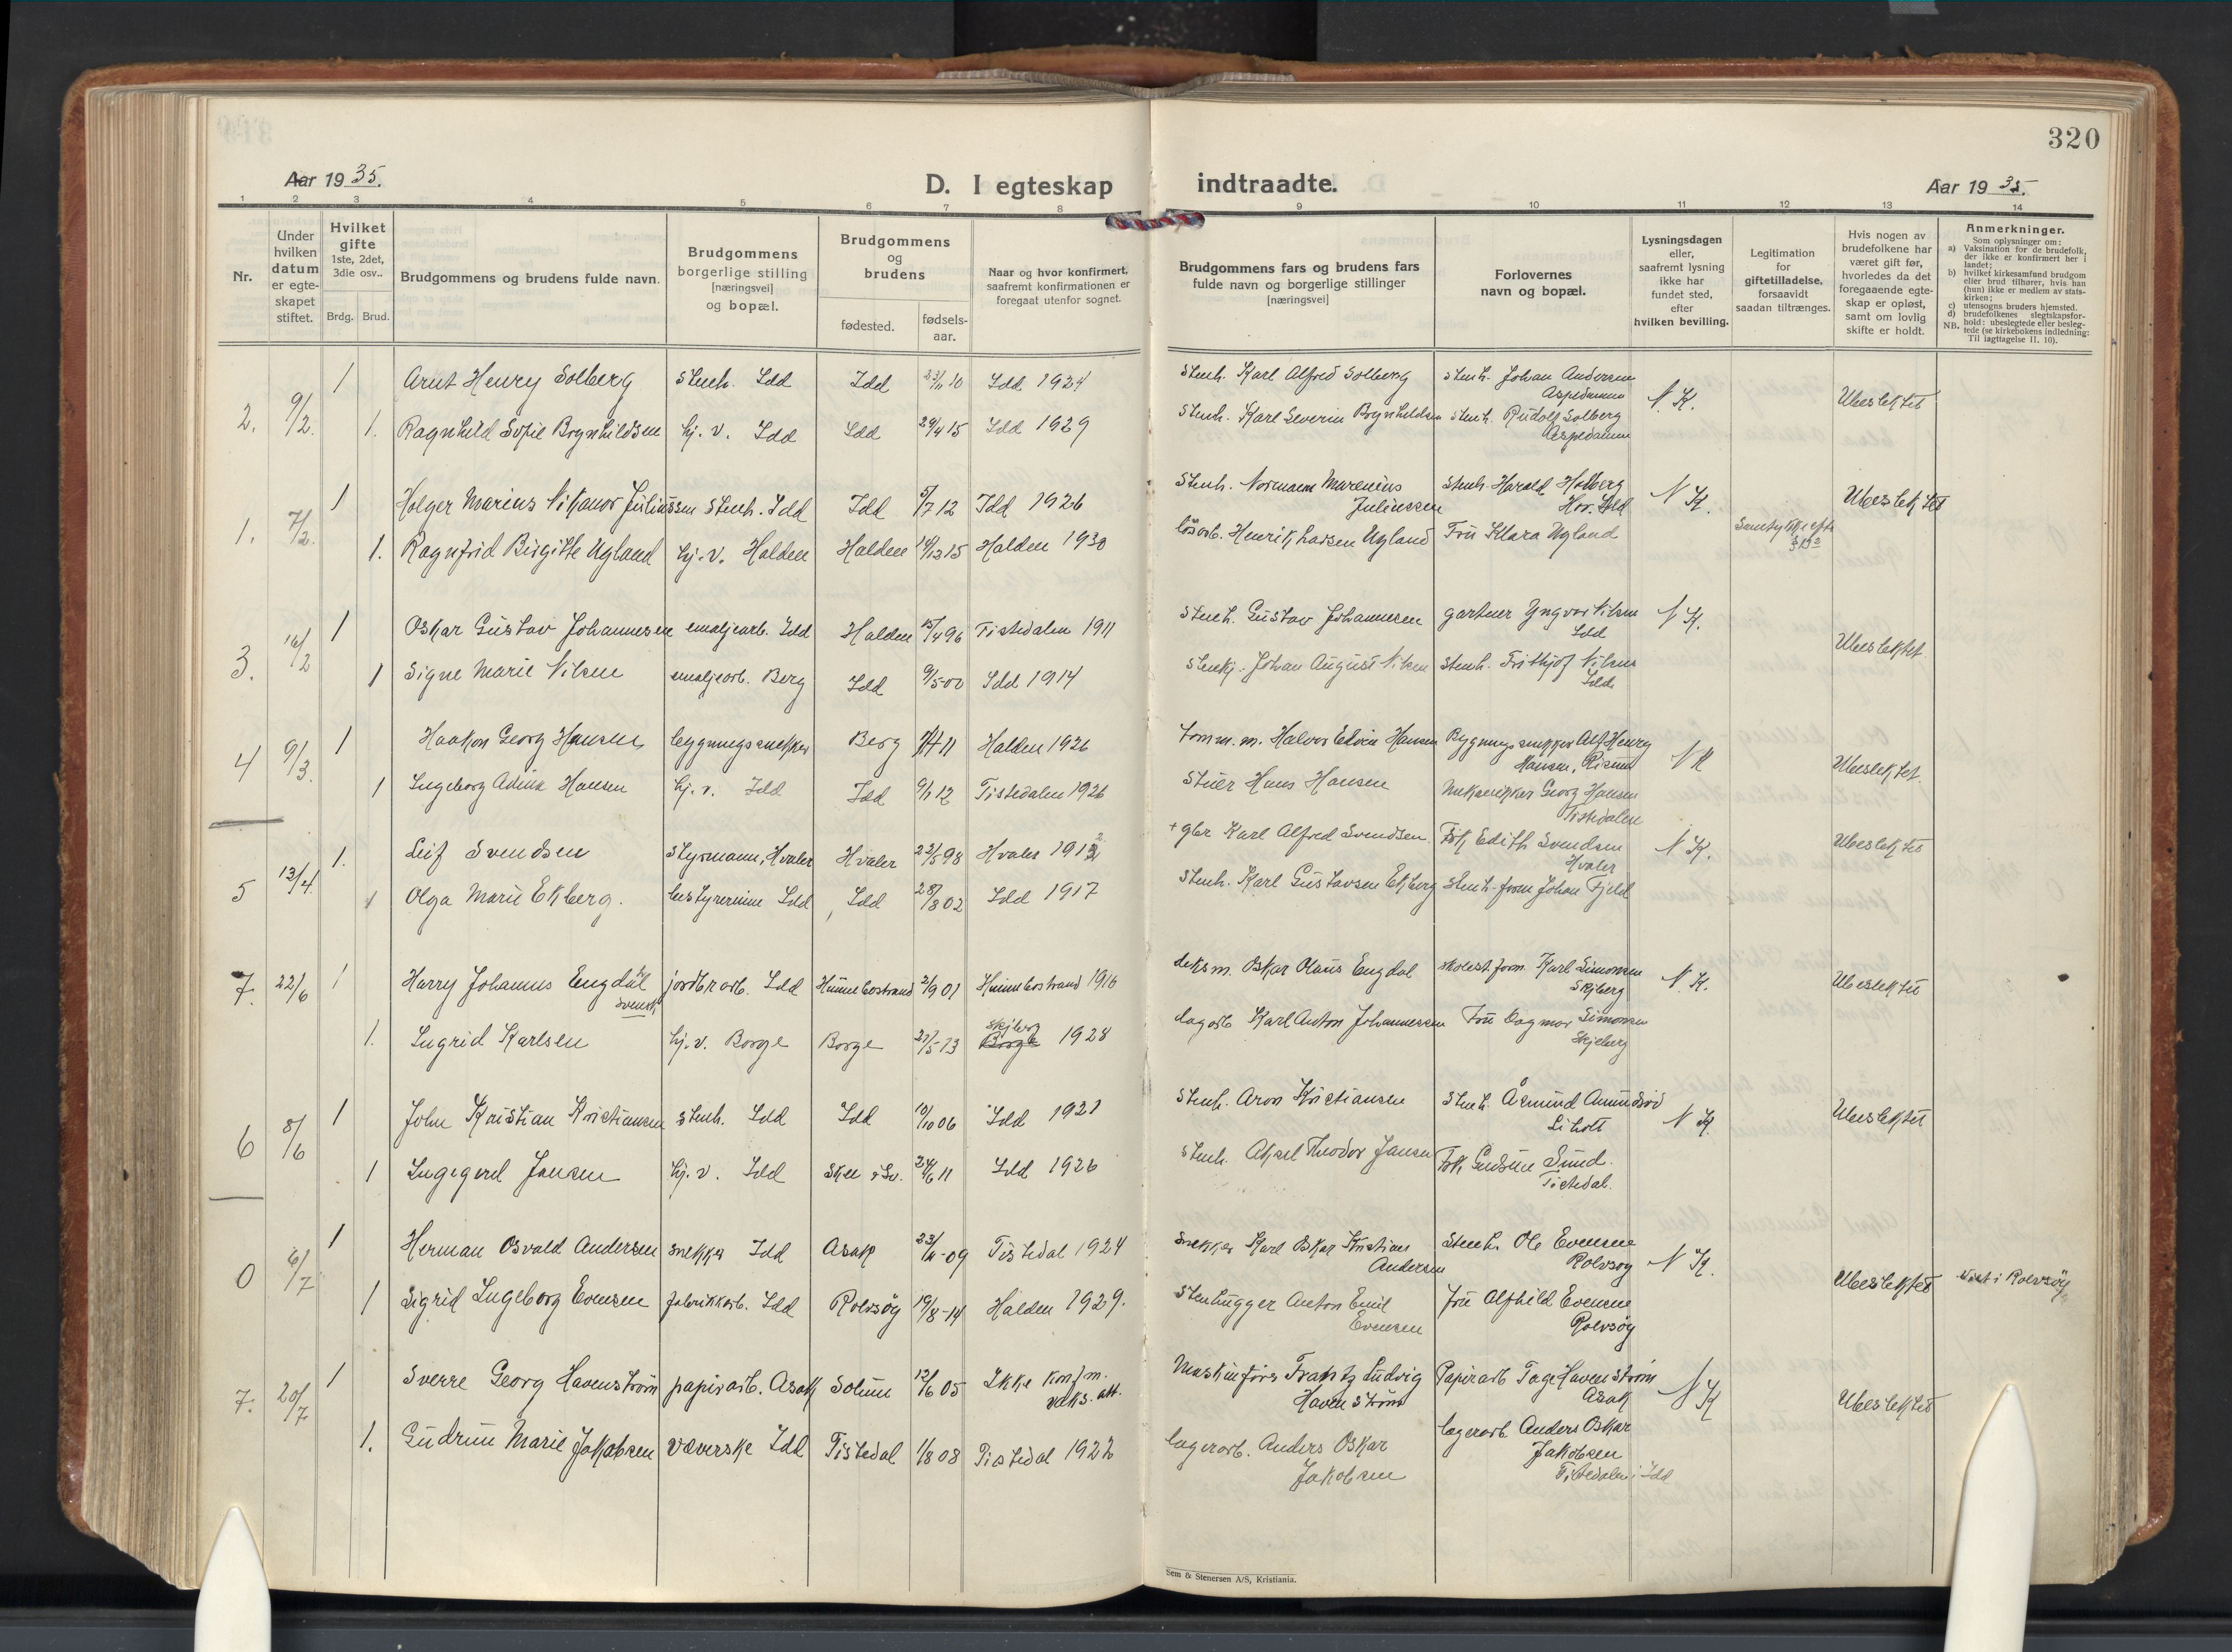 320
Aar 1935.
D. I egteskap
indtraadte.
Aar 1935.
1 2 3 4 5 6 7 8 9 10 11 12 13 14
Nr.
Under hvilken datum er egteskapet stiftet.
Hvilket gifte 1ste, 2det, 3die osv..
Brdg. Brud.
Brudgommens og brudens fulde navn.
Brudgommens borgerlige stilling [næringsvei] og bopæl.
Brudgommens og brudens
fødested.
fødsels-aar.
Naar og hvor konfirmert, saafremt konfirmationen er foregaat utenfor sognet.
Brudgommens fars og brudens fars fulde navn og borgerlige stillinger [næringsvei]
Forlovernes navn og bopæl.
Lysningsdagen eller, saafremt lysning ikke har fundet sted, efter hvilken bevilling.
Legitimation for giftetilladelse, forsaavidt saadan tiltrænges.
Hvis nogen av brudefolkene har været gift før, hvorledes da det foregaaende egteskap er opløst, samt om lovlig skifte er holdt.
Anmerkninger.
Som oplysninger om:
a) Vaksination for de brudefolk, der ikke er konfirmert her i landet;
b) hvilket kirkesamfund brudgom eller brud tilhører, hvis han (hun) ikke er medlem av statskirken;
c) utensogns bruders hjemsted.
d) brudefolkenes slegtskapsforhold: ubeslegtede eller beslegtede (se kirkebokens indledning:
NB. Til iagttagelse II. 10).
2. 9/2. 1 Arnt Henry Solberg stenh. Idd Idd 23/11 10 Idd 1924 Stenh. Karl Alfred Solberg stenh. Johan Andersen Aspedammen N.K. Ubeslektet
1. Ragnhild Sofie Brynhildsen hj.v. Idd Idd 29/4 15 Idd 1929 Stenh. Karl Severin Brynhildsen stenh. Rudolf Solberg Aspedammen
1. 7/2. 1 Holger Marius Nikanor Juliussen stenh. Idd Idd 5/7 12 Idd 1926 Stenh. Normann Marenius Juliussen stenh. Harald Holberg Hov. Idd N K. Ubeslektet
1. Ragnfrid Birgitte Ugland hj.v. Halden Halden 14/12 15 Halden 1930 løsarb. Henrik Larsen Ugland Fru Klara Ugland
3. 16/2 1 Oskar Gustav Johannesen emaljearb. Idd Halden 15/4 96 Tistedalen 1911 Stenh. Gustav Johannesen gartner Yngvar Nilsen Idd N K. Ubeslektet.
1 Signe Marie Nilsen emaljearb. Berg Idd 9/5 00 Idd 1914 Stenh. Johan August Nilsen stenh. Frithjof Nilsen Idd.
4 9/3. 1 Haakon Georg Hansen bygningssnekker Berg 11 Halden 1926 tømm.m. Halvor Edvin Hansen Bygningssnekker Alf Henry Hansen, Risum N K Ubeslektet.
1 Ingeborg Adina Hansen hj.v. Idd Idd 9/1 12 Tistedalen 1926 Stuer Hans Hansen Georg Hansen Tistedalen
5 13/4. 1. Leif Svendsen Styrmann, Hvaler Hvaler 22/5 98 Hvaler 1912 + gbr Karl Alfred Svendsen Frk Edith Svendsen Hvaler N K. Ubeslektet
1 Olga Marie Ekberg. bestyrerinne Idd Idd 28/8 02 Idd 1917 Stenh. Karl Gustavsen Ekberg stenh.form Johan Fjeld
7. 22/6 1 Harry Johannes Engdal svensk jordbrarb. Idd Hunnebostrand 2/9 01 Hunnebostrand 1916 Oskar Olaus Engdal form. Karl Simonsen Skjeberg N. K. Ubeslektet
1. Ingrid Karlsen hj.v. Borge Borge 27/5 13 Skjeberg Borge 1928 dagarb Karl Anton Johannessen Fru Dagmar Simonsen Skjeberg
6 8/6 1 John Kristian Kristiansen stenh. Idd Idd 10/10 06 Idd 1921 Stenh. Aron Kristiansen Stenh. Åsmund Amundsrød Liholt N K. Ubeslektet
1 Ingegerd Jansen hj.v. Idd Skee i Sv. 24/6 11 Idd 1926 Stenh. Aksel Theodor Jansen Frk. Gudrun Sund. Tistedal.
0 6/7 1 Herman Osvald Andersen snekker Idd Asak 23/11-09 Tistedal 1924 Snekker Karl Oskar Kristian Andersen Stenh. Ole Evensen Rolvsøy N K. Ubeslektet Viet i Rolvsøy
1 Sigrid Ingeborg Evensen fabrikkarb. Idd Rolvsøy 19/8-14 Halden 1929. Stenhugger Anton Emil Evensen Fru Alfhild Evensen Rolvsøy
7. 20/7 1 Sverre Georg Havenstrøm papirarb. Asak Solum 12/6 05 Ikke konfm. vaks. att. Maskinfører Frantz Ludvig Havenstrøm Papirarb Tage Havenstrøm Asak N K Ubeslektet
1. Gudrun Marie Jakobsen væverske Idd Tistedal 1/8 08 Tistedal 1922 lagerarb. Anders Oskar Jakobsen lagerarb. Anders Oskar Jakobsen Tistedalen i Idd
Sem & Stenersen A/S, Kristiania.